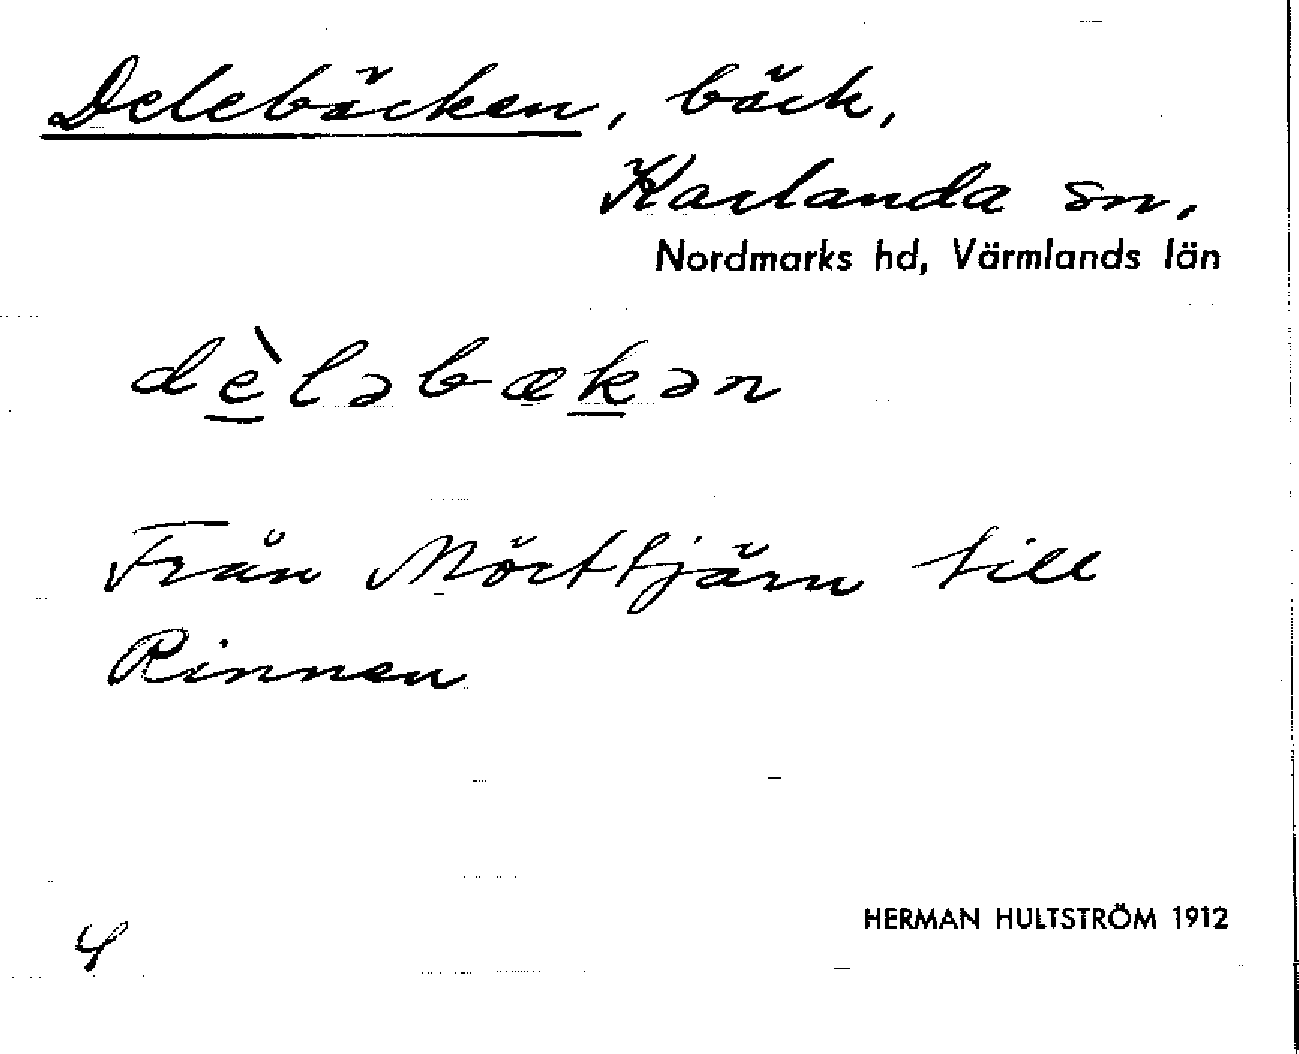 Delebäcken, bäck,
Karlanda sn,
Nordmarks hd, Värmlands län
dèləbækən
Från Mörttjärn till
Rinnen
HERMAN HULTSTRÖM 1912
4